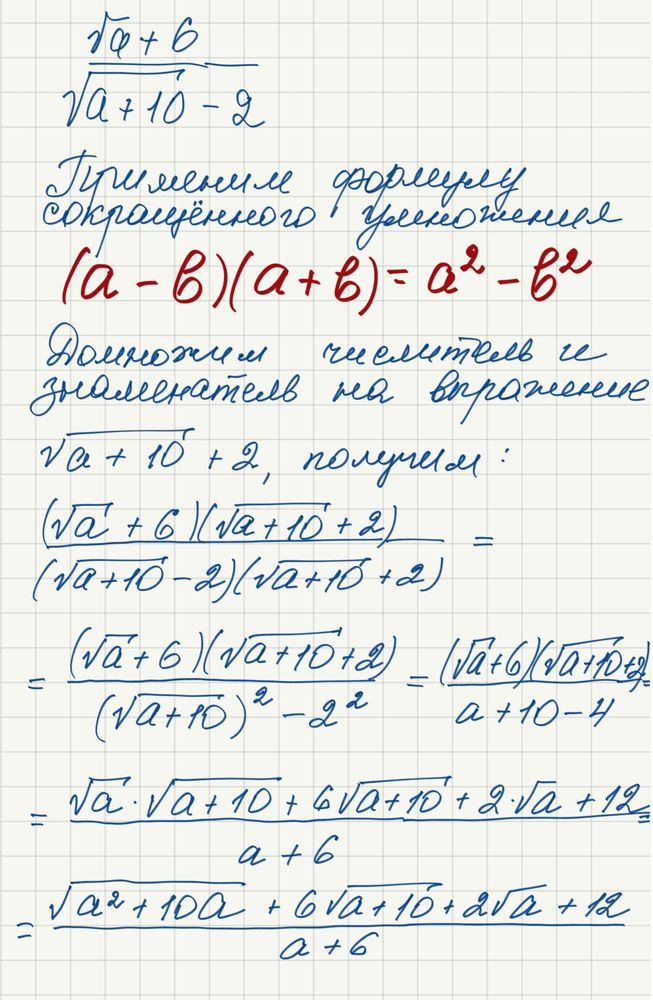 (√a + 6)/(√(a+10) − 2)
Применим формулу
сокращённого умножения
(a − b)(a + b) = a² − b²
Домножим числитель и
знаменатель на выражение
√(a + 10) + 2, получим:
((√a + 6)(√(a+10) + 2))/((√(a+10) − 2)(√(a+10) + 2)) =
= ((√a + 6)(√(a+10) + 2))/((√(a+10))² − 2²) = ((√a + 6)(√(a+10) + 2))/(a + 10 − 4) =
= (√a · √(a+10) + 6√(a+10) + 2·√a + 12)/(a + 6) =
= (√(a² + 10a) + 6√(a+10) + 2√a + 12)/(a + 6)